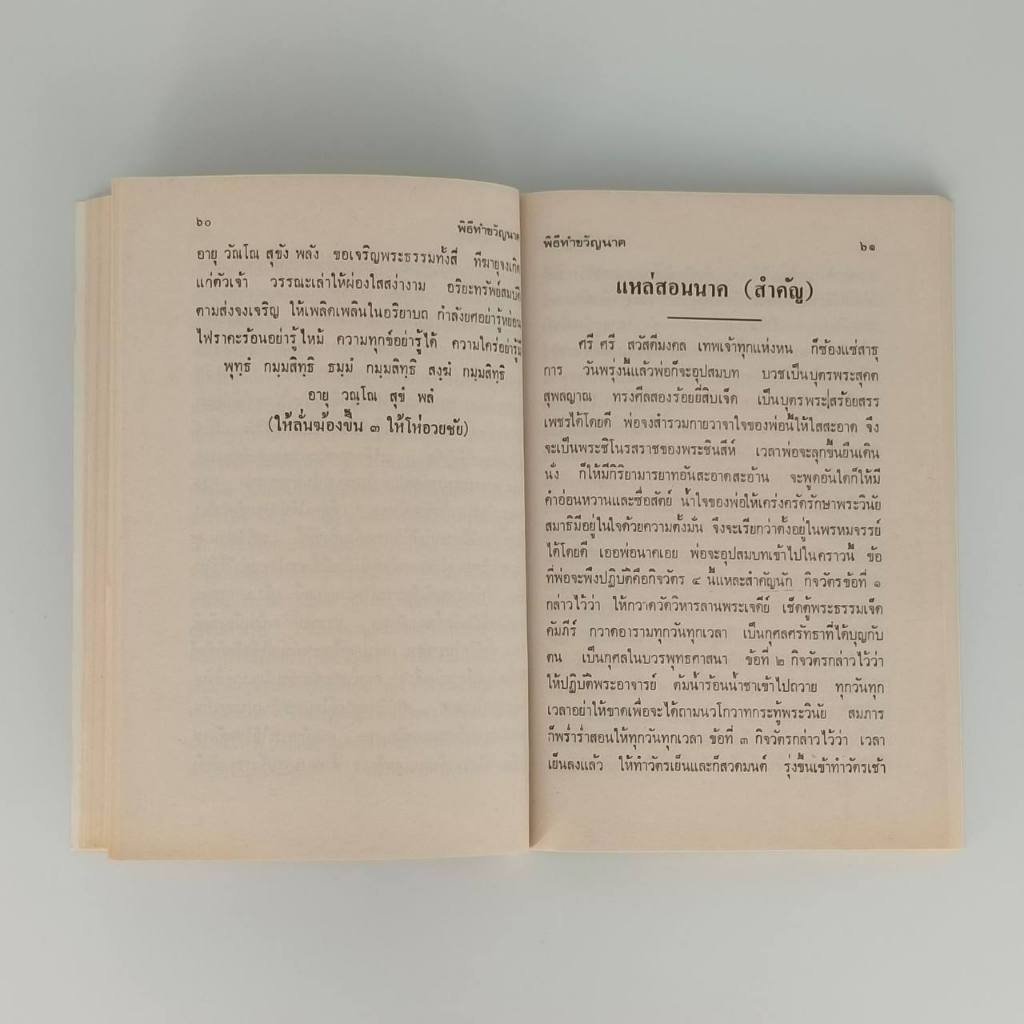 ๖๐
พิธีทำขวัญนาค
อายุ วัณโณ สุขัง พลัง ขอเจริญพระธรรมทั้งสี่ ทีฆายุจงเกิด
แก่ตัวเจ้า วรรณะเล่าให้ผ่องใสสง่างาม อริยะทรัพย์สมบัติ
ตามส่งจงเจริญ ให้เพลิดเพลินในอริยาบถ กำลังยศอย่ารู้หย่อน
ไฟราคะร้อนอย่ารู้ไหม้ ความทุกข์อย่ารู้ได้ ความใคร่อย่ารู้มี
พุทฺธํ กมฺมสิทฺธิ ธมฺมํ กมฺมสิทฺธิ สงฺฆํ กมฺมสิทฺธิ
อายุ วณฺโณ สุขํ พลํ
(ให้ลั่นฆ้องขึ้น ๓ ให้โห่อวยชัย)
พิธีทำขวัญนาค
๖๑
แหล่สอนนาค (สำคัญ)
ศรี ศรี สวัสดีมงคล เทพเจ้าทุกแห่งหน ก็ซ้องแซ่สาธุ
การ วันพรุ่งนี้แล้วพ่อก็จะอุปสมบท บวชเป็นบุตรพระสุคต
สุพลญาณ ทรงศีลสองร้อยยี่สิบเจ็ด เป็นบุตรพระสร้อยสรร
เพชรได้โดยดี พ่อจงสำรวมกายวาจาใจของพ่อนี้ให้ใสสะอาด จึง
จะเป็นพระชิโนรสราชของพระชินสีห์ เวลาพ่อจะลุกขึ้นยืนเดิน
นั่ง ก็ให้มีกิริยามารยาทอันสะอาดสะอ้าน จะพูดอันใดก็ให้มี
คำอ่อนหวานและซื่อสัตย์ น้ำใจของพ่อให้เคร่งครัดรักษาพระวินัย
สมาธิมีอยู่ในใจด้วยความตั้งมั่น จึงจะเรียกว่าตั้งอยู่ในพรหมจรรย์
ได้โดยดี เออพ่อนาคเอย พ่อจะอุปสมบทเข้าไปในคราวนี้ ข้อ
ที่พ่อจะพึงปฏิบัติคือกิจวัตร ๔ นี้แหละสำคัญนัก กิจวัตรข้อที่ ๑
กล่าวไว้ว่า ให้กวาดวัดวิหารลานพระเจดีย์ เช็ดตู้พระธรรมเจ็ด
คัมภีร์ กวาดอารามทุกวันทุกเวลา เป็นกุศลศรัทธาที่ได้บุญกับ
ตน เป็นกุศลในบวรพุทธศาสนา ข้อที่ ๒ กิจวัตรกล่าวไว้ว่า
ให้ปฏิบัติพระอาจารย์ ต้มน้ำร้อนน้ำชาเข้าไปถวาย ทุกวันทุก
เวลาอย่าให้ขาดเพื่อจะได้ถามนวโกวาทกระทู้พระวินัย สมภาร
ก็พร่ำร่ำสอนให้ทุกวันทุกเวลา ข้อที่ ๓ กิจวัตรกล่าวไว้ว่า เวลา
เย็นลงแล้ว ให้ทำวัตรเย็นและก็สวดมนต์ รุ่งขึ้นเข้าทำวัตรเช้า